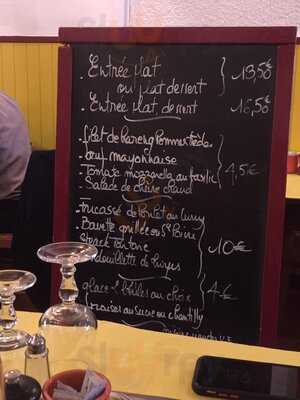 Entrée plat
ou plat dessert 13,50
Entrée plat, dessert 16,50
filet de hareng Pomme tiède
œuf mayonnaise
Tomate mozzarella au basilic 4,5€
Salade de chèvre chaud
Fricassé de Poulet au curry
Bavette grillée ou St Poivre
Steack tartare 10€
andouillette de Troyes
glace 2 boules au choix 4€
fraises au sucre ou chantilly